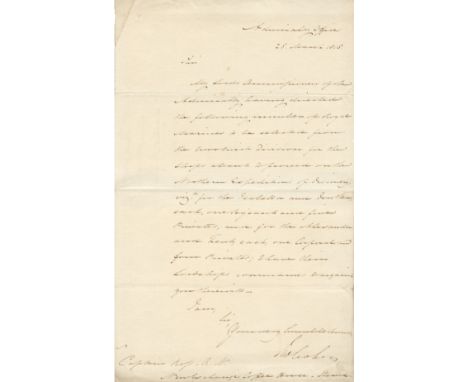 Admiralty Office
25 March 1818
Sir
My Lords Commissioners of the
Admiralty having directed
the following number of Royal
Marines to be selected from
the Woolwich Division for the
Ships about to proceed on the
Northern Expedition of discovery,
vizt. for the Isabella and Dorothea
each, one Serjeant and four
Privates, and for the Alexander
and Trent, each one Corporal and
four Privates; I have their
Lordships commands to acquaint
you therewith.
I am,
Sir
Your very humble Servant
Captain Ross R. N.